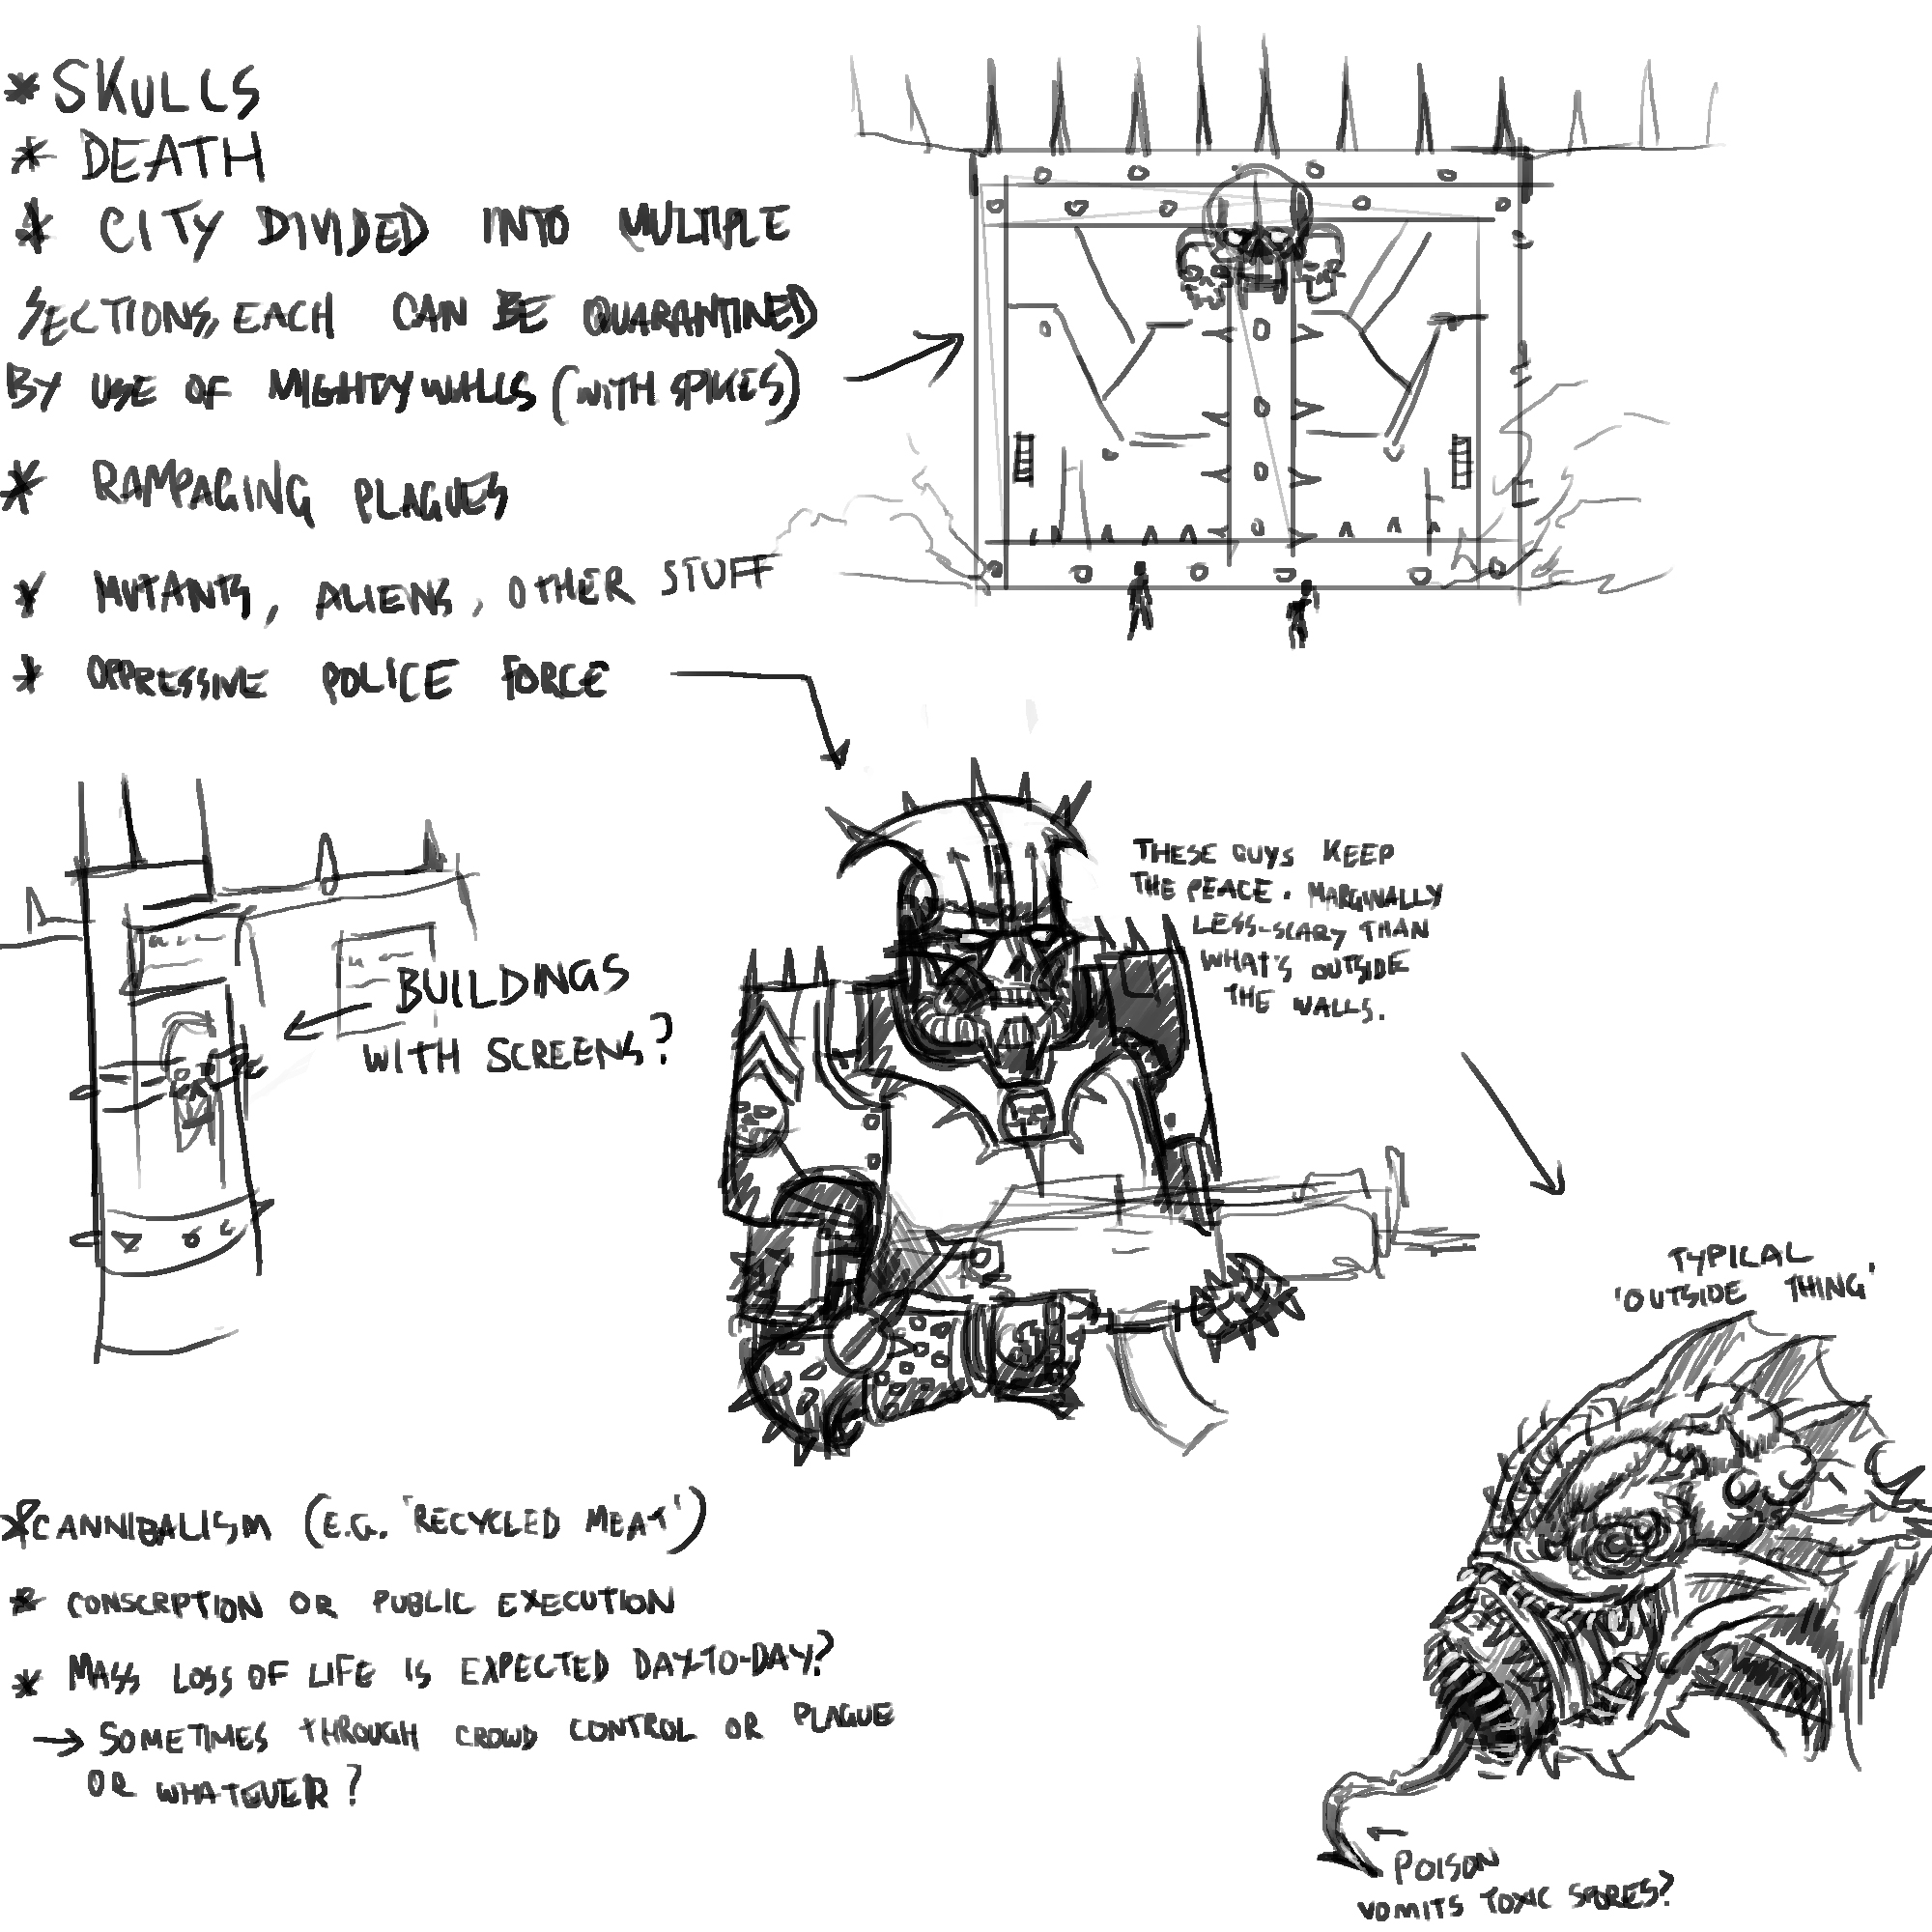 * SKULLS
* DEATH
* CITY DIVIDED INTO MULTIPLE
SECTIONS, EACH CAN BE QUARANTINED
BY USE OF MIGHTY WALLS (WITH SPIKES)
* RAMPAGING PLAGUES
* MUTANTS, ALIENS, OTHER STUFF
* OPPRESSIVE POLICE FORCE
THESE GUYS KEEP
THE PEACE. MARGINALLY
LESS-SCARY THAN
WHAT'S OUTSIDE
THE WALLS.
BUILDINGS
WITH SCREENS?
TYPICAL
'OUTSIDE THING'
* CANNIBALISM (E.G. 'RECYCLED MEAT')
* CONSCRPTION OR PUBLIC EXECUTION
* MASS LOSS OF LIFE IS EXPECTED DAY-TO-DAY?
→ SOMETIMES THROUGH CROWD CONTROL OR PLAGUE
OR WHATEVER?
← POISON
VOMITS TOXIC SPORES?